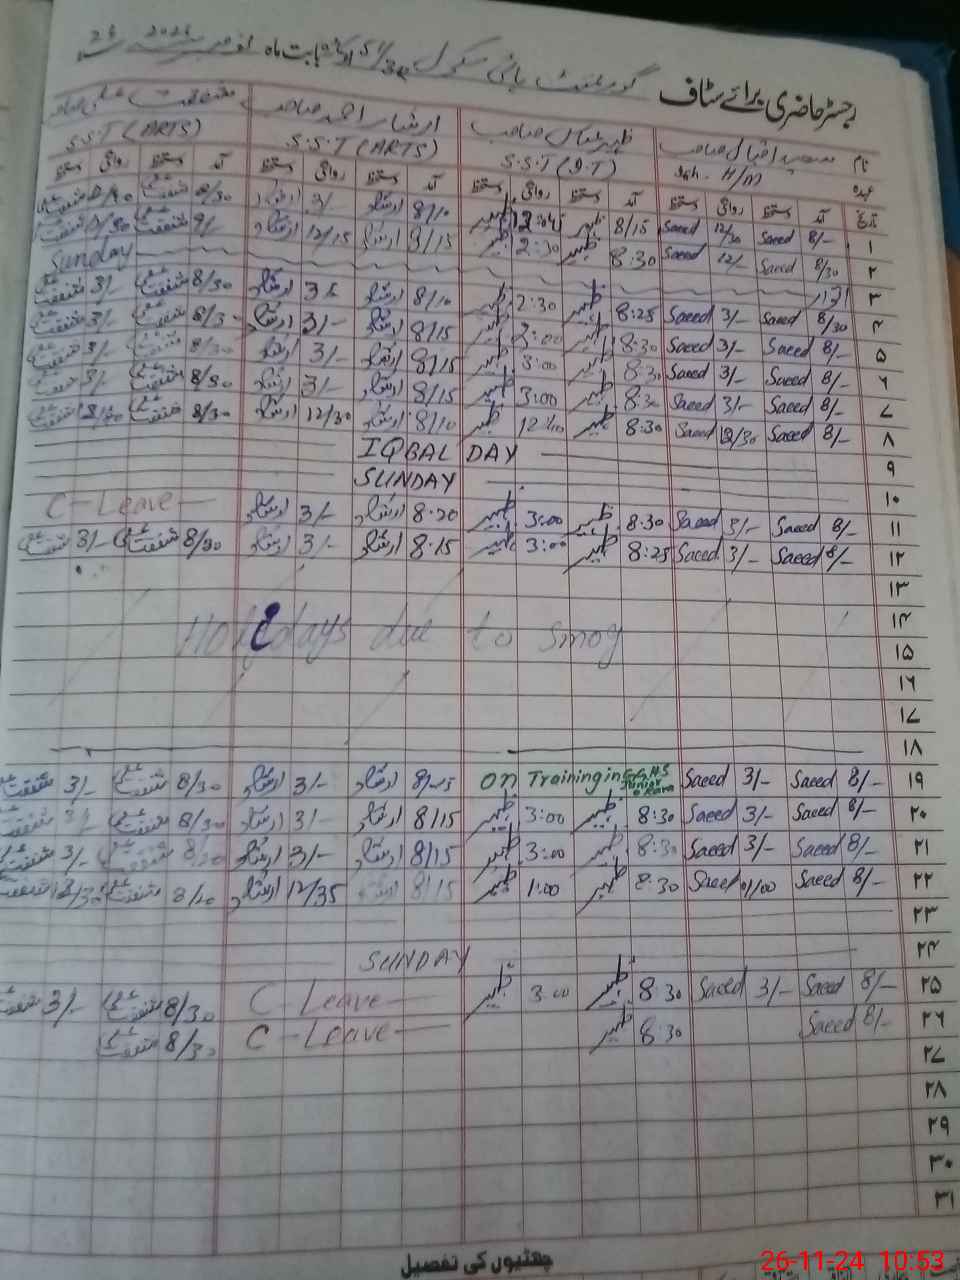 رجسٹر حاضری برائے سٹاف گورنمنٹ ہائی سکول بابت ماہ نومبر
نام سعید اقبال صاحب ظہیر عباس صاحب ارشاد احمد صاحب شفقت علی صاحب
عہدہ H/M S.S.T (I.T) S.S.T (ARTS) S.S.T (ARTS)
تاریخ آمد دستخط روانگی دستخط آمد دستخط روانگی دستخط آمد دستخط روانگی دستخط آمد دستخط روانگی دستخط
۱ 8/- Saeed 12/30 Saeed 8/15 ظہیر 12:45 ظہیر 8/10 ارشاد 3/- ارشاد 8/30 شفقت علی شفقت علی
۲ 8/30 Saeed 12/- Saeed 8:30 ظہیر 2:30 ظہیر ارشاد 12/15 ارشاد 9/- شفقت علی شفقت علی
۳ اتوار Sunday
۴ 8/30 Saeed 3/- Saeed 8:25 ظہیر 2:30 ظہیر 8/10 ارشاد ارشاد 8/30 شفقت علی 3/- شفقت علی
۵ 8/- Saeed 3/- Saeed 8:30 ظہیر 3:00 ظہیر 8/15 ارشاد 3/- ارشاد شفقت علی 3/- شفقت علی
۶ 8/- Saeed 3/- Saeed 8:30 ظہیر 3:00 ظہیر 8/15 ارشاد 3/- ارشاد 8/30 شفقت علی 3/- شفقت علی
۷ 8/- Saeed 3/- Saeed 8:30 ظہیر 3:00 ظہیر 8/15 ارشاد 3/- ارشاد 8/30 شفقت علی 3/- شفقت علی
۸ 8/- Saeed 12/30 Saeed 8:30 ظہیر 12:40 ظہیر 8/10 ارشاد 12/30 ارشاد 8/30 شفقت علی شفقت علی
۹ IQBAL DAY
۱۰ SUNDAY
۱۱ 8/- Saeed 3/- Saeed 8:30 ظہیر 3:00 ظہیر 8.20 ارشاد 3/- ارشاد C-Leave
۱۲ 8/- Saeed 3/- Saeed 8:25 ظہیر 3:00 ظہیر 8.15 ارشاد 3/- ارشاد 8/30 شفقت علی 3/- شفقت علی
۱۳
۱۴ Holidays due to smog
۱۵
۱۶
۱۷
۱۸
۱۹ 8/- Saeed 3/- Saeed On Training in ارشاد 3/- ارشاد 8/30 شفقت علی 3/- شفقت علی
۲۰ 8/- Saeed 3/- Saeed 8:30 ظہیر 3:00 ظہیر 8/15 ارشاد 3/- ارشاد 8/30 شفقت علی 3/- شفقت علی
۲۱ 8/- Saeed 3/- Saeed 8:30 ظہیر 3:00 ظہیر 8/15 ارشاد 3/- ارشاد شفقت علی 3/- شفقت علی
۲۲ 8/- Saeed 01/00 Saeed 8:30 ظہیر 1:00 ظہیر 8/15 ارشاد 12/35 ارشاد شفقت علی شفقت علی
۲۳
۲۴ SUNDAY
۲۵ 8/- Saeed 3/- Saeed 8:30 ظہیر 3:00 ظہیر C-Leave 8/30 شفقت علی 3/- شفقت علی
۲۶ 8/- Saeed 8:30 ظہیر C-Leave 8/30 شفقت علی
۲۷
۲۸
۲۹
۳۰
۳۱
چھٹیوں کی تفصیل
26-11-24 10:53